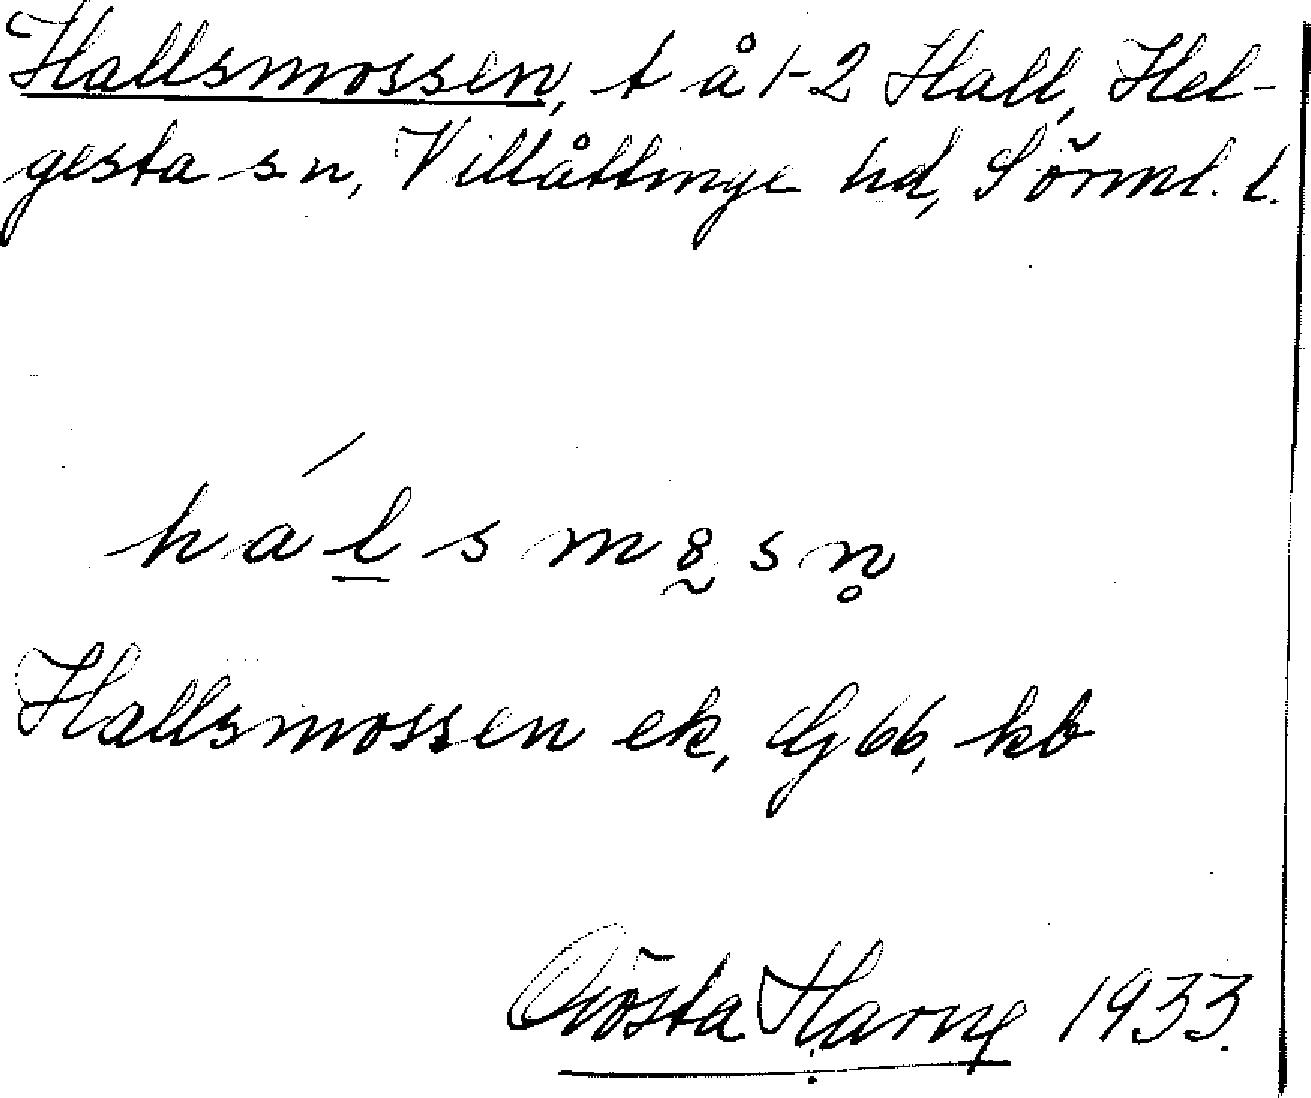 Hallsmossen, t å 1-2 Hall, Hel-
gesta sn, Villåttinge hd, Sörml. l.
hálsmo̰sn̥
Hallsmossen ek, G 66, kb
Gösta Harne 1933.